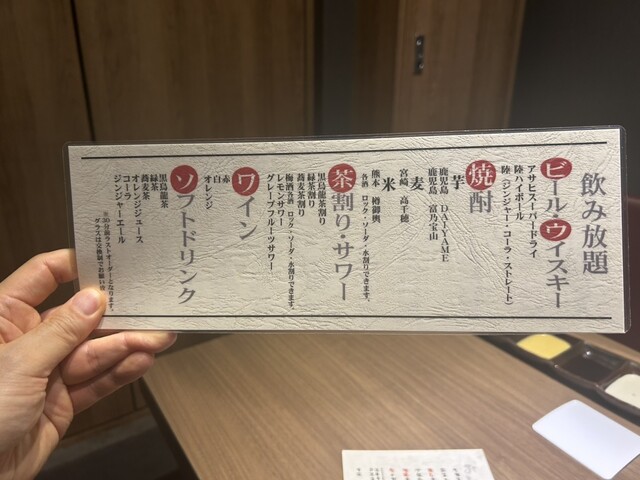 飲み放題
ビール・ウイスキー
アサヒスーパードライ
陸ハイボール
陸（ジンジャー・コーラ・ストレート）
焼酎
芋
鹿児島 DAIYAME
鹿児島 富乃宝山
麦
宮崎 高千穂
米
熊本 樽御輿
各酒 ロック・ソーダ・水割りできます。
茶割り・サワー
黒烏龍茶割り
緑茶割り
蕎麦茶割り
梅酒各酒 ロック・ソーダ・水割りできます。
レモンサワー
グレープフルーツサワー
ワイン
赤
白
オレンジ
ソフトドリンク
黒烏龍茶
緑茶
蕎麦茶
オレンジジュース
コーラ
ジンジャーエール
※30分前ラストオーダーとなります。
グラスは交換制でお願い致します。